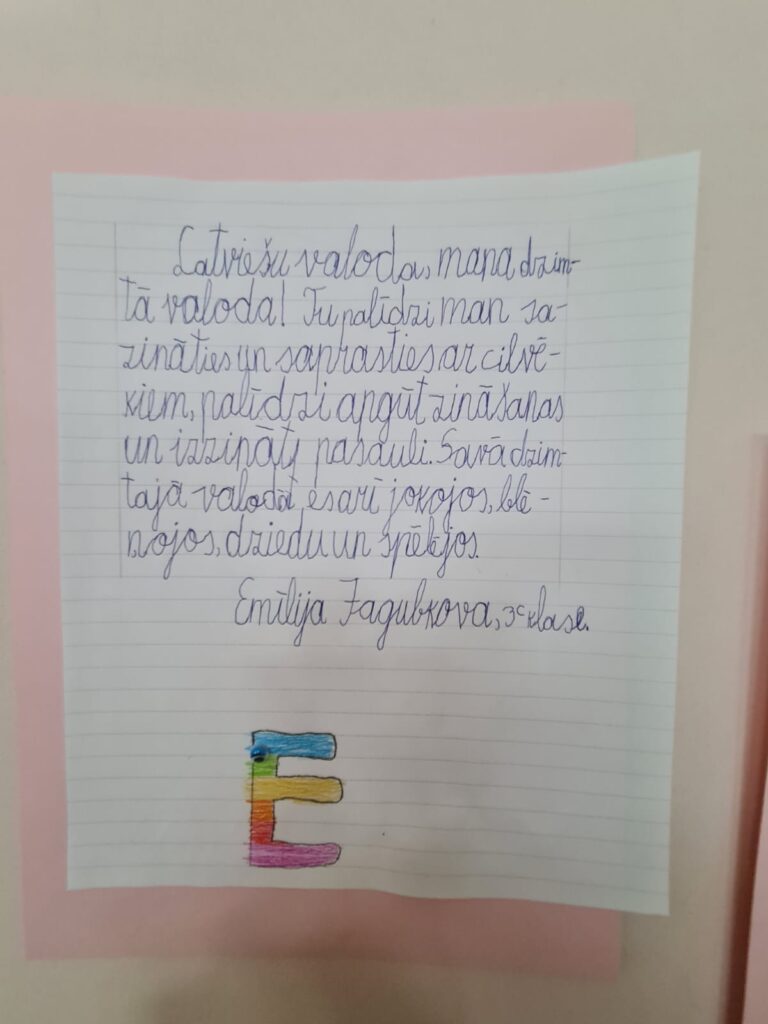 Latviešu valoda, mana dzim-
tā valoda! Tu palīdzi man sa-
zināties un saprasties ar cilvē-
kiem, palīdzi apgūt zināšanas
un izzināt pasauli. Savā dzim-
tajā valodā es arī jokojos, blē-
ņojos, dziedu un spēlējos.
Emīlija Jagubkova, 3c klase.
E